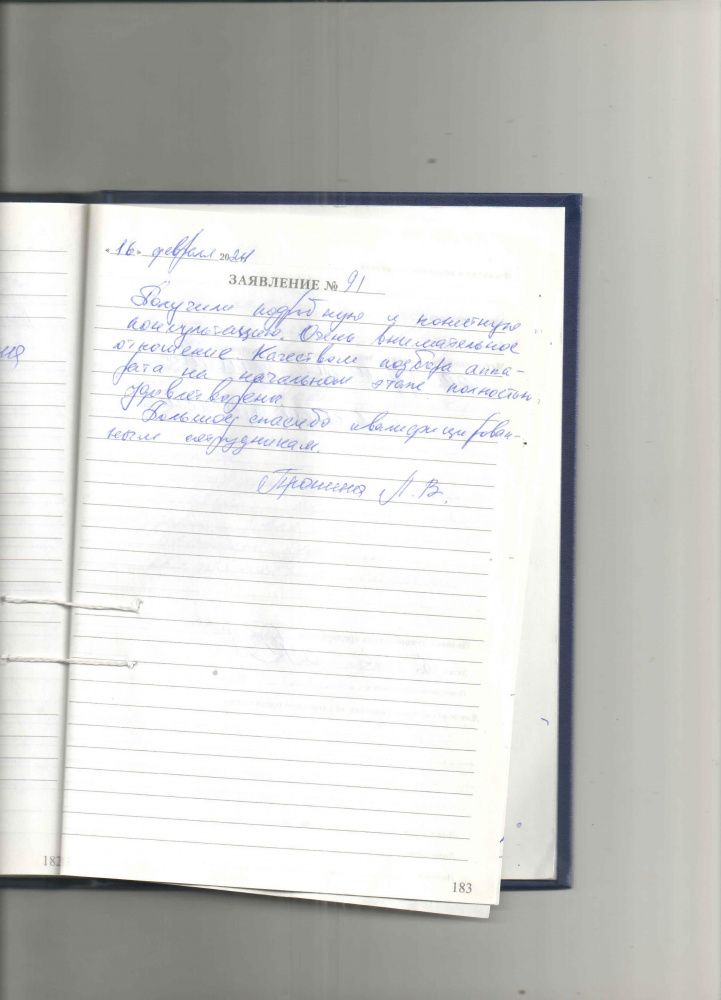 « 16 » февраля 2024
ЗАЯВЛЕНИЕ № 91
Получили подробную и
консультацию. Очень внимательное
отношение. Качеством подбора аппа-
рата на начальном этапе полностью
удовлетворены.
Большое спасибо квалифицирован-
ным сотрудникам.
Пронина Л. В.
182
183